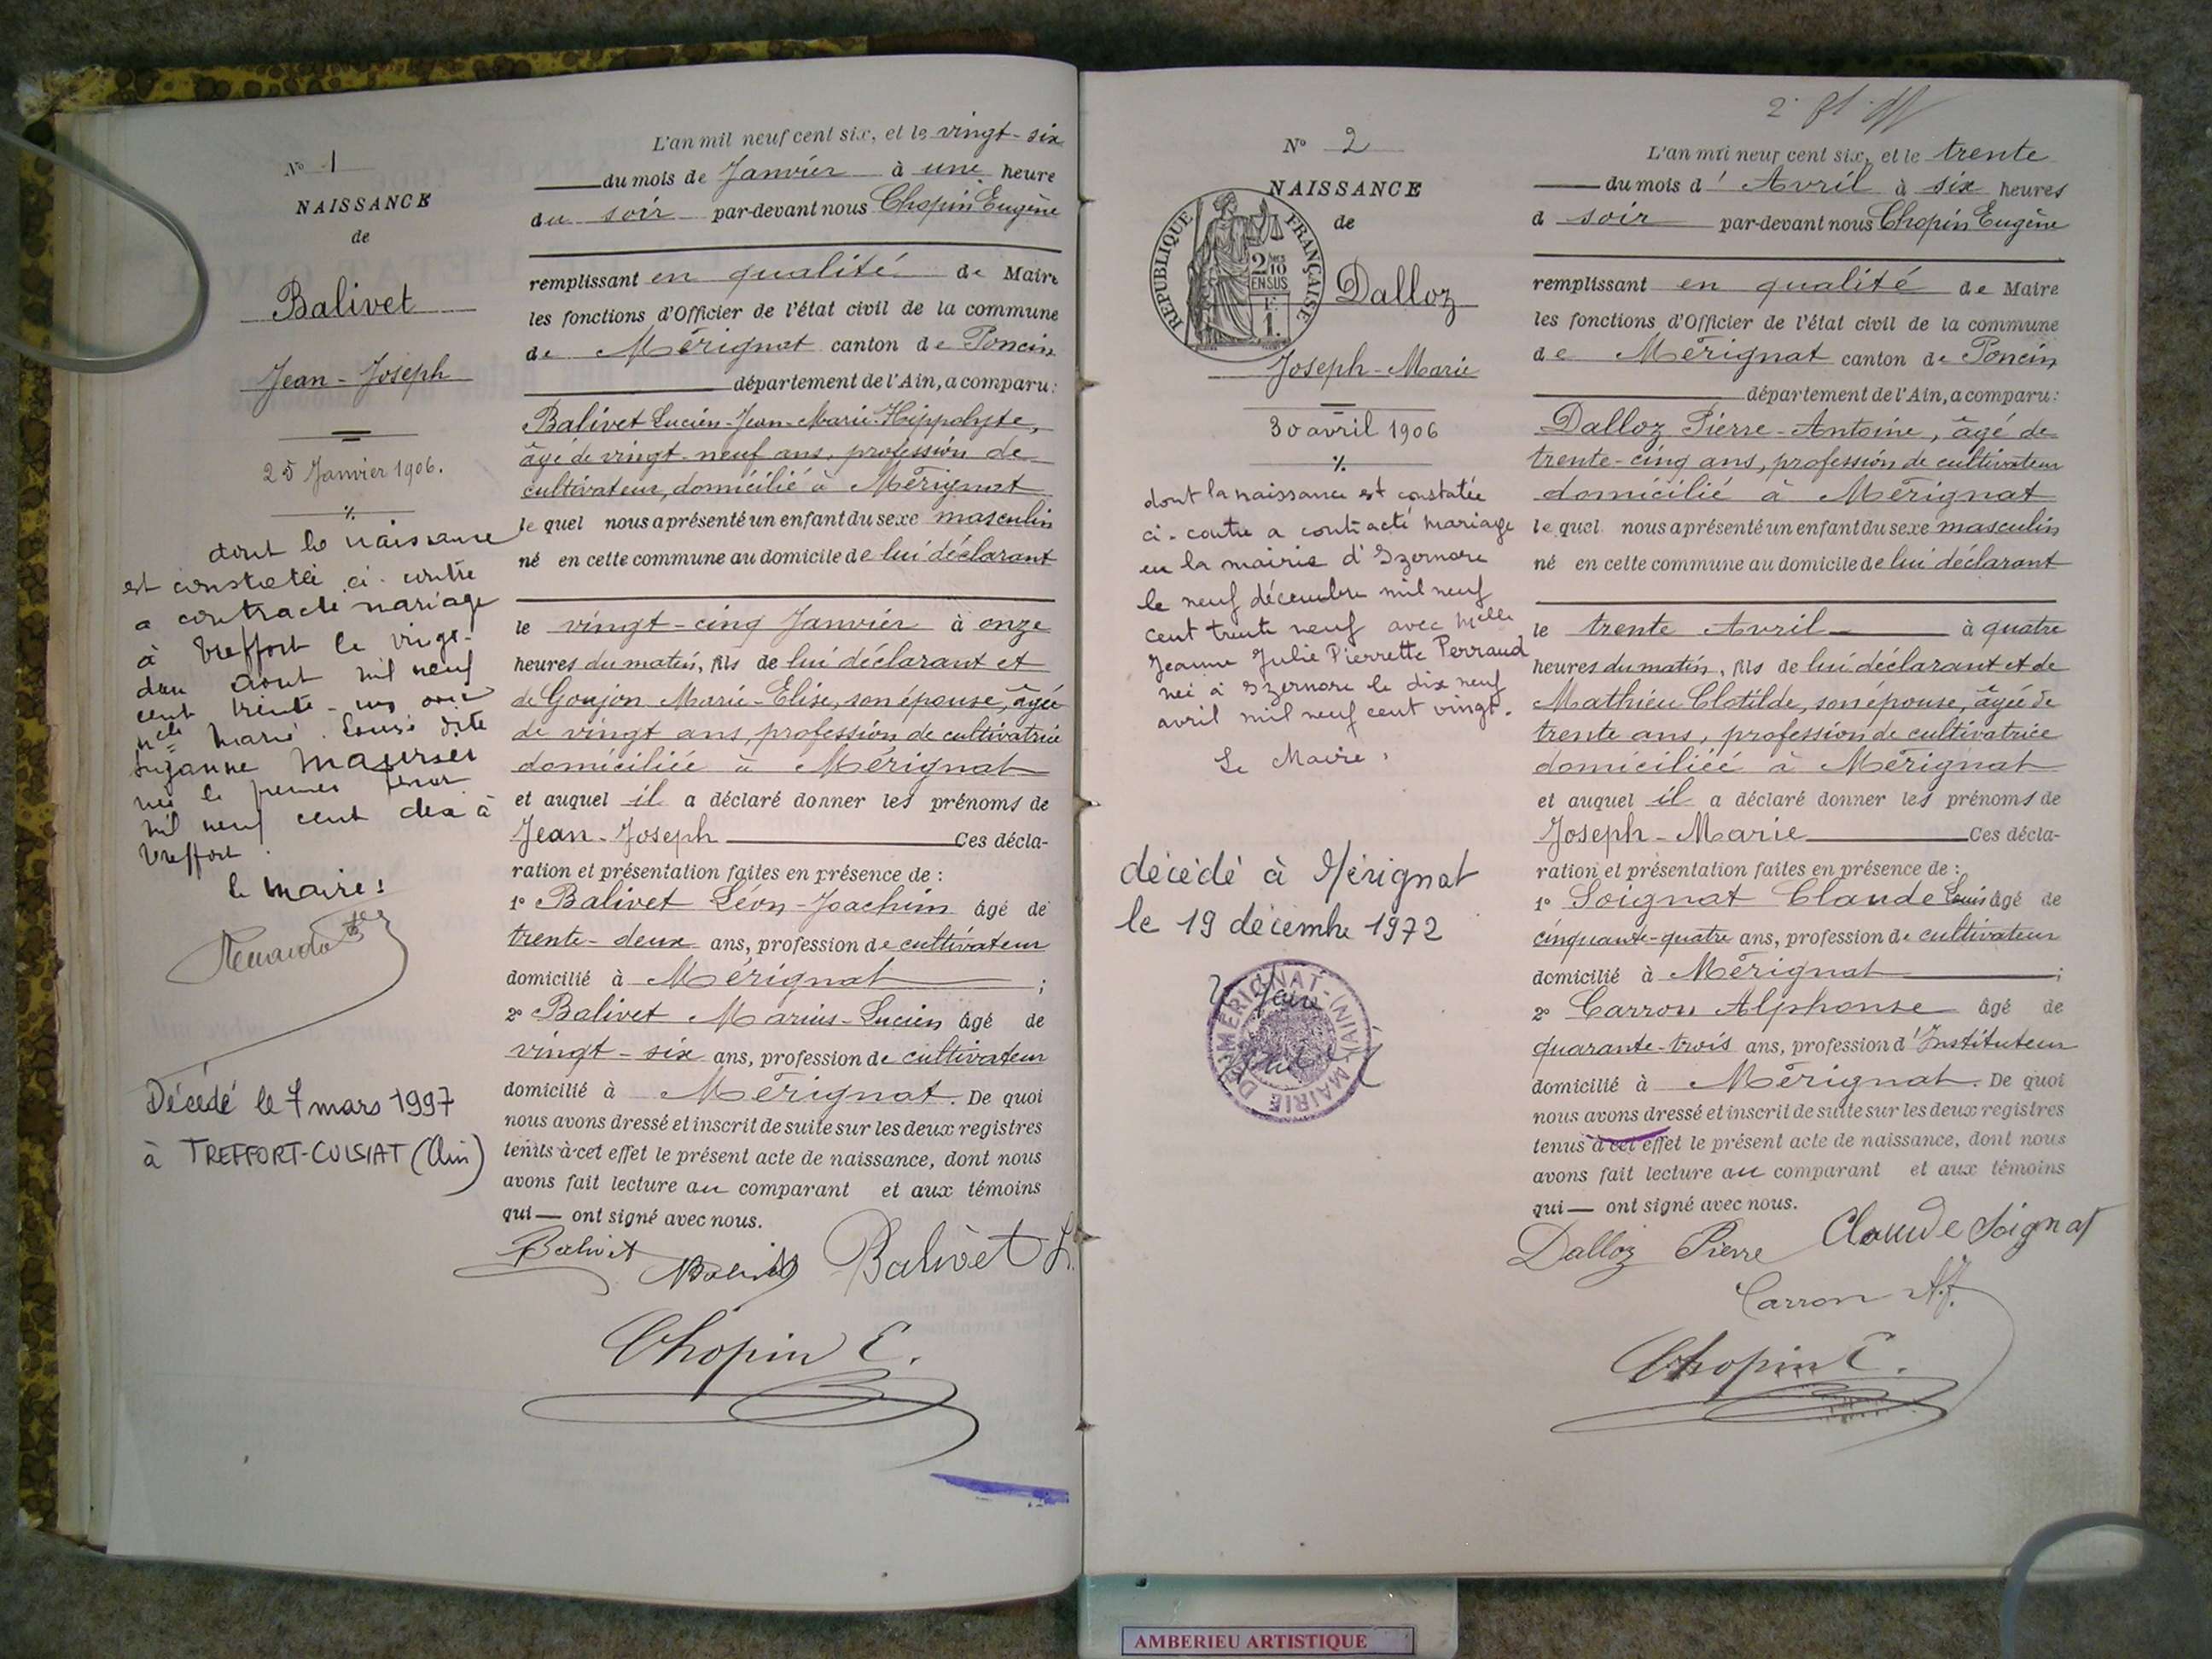 N° 1
NAISSANCE
de
Balivet
Jean-Joseph
25 Janvier 1906.
dont la naissance
est constatée ci-contre
a contracté mariage
à Treffort le vingt-
deux aout mil neuf
cent trente-un avec
Mlle Marie Louise dite
Suzanne
née le premier
mil neuf cent dix à
Treffort.
le Maire :
Décédé le 7 mars 1997
à TREFFORT-CUISIAT (Ain)
L'an mil neuf cent six, et le vingt-six
du mois de Janvier à une heure
du soir par-devant nous Chopin Eugène
remplissant en qualité de Maire
les fonctions d'Officier de l'état civil de la commune
de Mérignat canton de Poncin
département de l'Ain, a comparu :
Balivet Lucien-Jean-Marie-Hippolyte,
âgé de vingt-neuf ans, profession de
cultivateur, domicilié à Mérignat
lequel nous a présenté un enfant du sexe masculin
né en cette commune au domicile de lui déclarant
le vingt-cinq Janvier à onze
heures du matin, fils de lui déclarant et
de Goujon Marie-Elise, son épouse, âgée
de vingt ans, profession de cultivatrice
domiciliée à Mérignat
et auquel il a déclaré donner les prénoms de
Jean-Joseph Ces décla-
ration et présentation faites en présence de :
1° Balivet Léon-Joachim âgé de
trente-deux ans, profession de cultivateur
domicilié à Mérignat ;
2° Balivet Marius-Lucien âgé de
vingt-six ans, profession de cultivateur
domicilié à Mérignat. De quoi
nous avons dressé et inscrit de suite sur les deux registres
tenus à cet effet le présent acte de naissance, dont nous
avons fait lecture au comparant et aux témoins
qui — ont signé avec nous.
Balivet Balivet Balivèt L.
Chopin E.
N° 2
NAISSANCE
de
RÉPUBLIQUE FRANÇAISE
2/10
EN SUS
1 F.
Dalloz
Joseph-Marie
30 avril 1906
dont la naissance est constatée
ci-contre a contracté mariage
en la mairie d'Izernore
le neuf décembre mil neuf
cent trente neuf avec Melle
Jeanne Julie Pierrette Perraud
née à Izernore le dix neuf
avril mil neuf cent vingt.
Le Maire,
décédé à Mérignat
le 19 décembre 1972
MAIRIE DE MÉRIGNAT (AIN)
L'an mil neuf cent six, et le trente
du mois d'Avril à six heures
d soir par-devant nous Chopin Eugène
remplissant en qualité de Maire
les fonctions d'Officier de l'état civil de la commune
de Mérignat canton de Poncin
département de l'Ain, a comparu :
Dalloz Pierre-Antoine, âgé de
trente-cinq ans, profession de cultivateur
domicilié à Mérignat
lequel nous a présenté un enfant du sexe masculin
né en cette commune au domicile de lui déclarant
le trente Avril à quatre
heures du matin, fils de lui déclarant et de
Mathieu Clotilde, son épouse, âgée de
trente ans, profession de cultivatrice
domiciliée à Mérignat
et auquel il a déclaré donner les prénoms de
Joseph-Marie Ces décla-
ration et présentation faites en présence de :
1° Soignat Claude Louis âgé de
cinquante-quatre ans, profession de cultivateur
domicilié à Mérignat ;
2° Carron Alphonse âgé de
quarante-trois ans, profession d'Instituteur
domicilié à Mérignat. De quoi
nous avons dressé et inscrit de suite sur les deux registres
tenus à cet effet le présent acte de naissance, dont nous
avons fait lecture au comparant et aux témoins
qui — ont signé avec nous.
Dalloz Pierre Claude Soignat
Carron
Chopin E.
AMBERIEU ARTISTIQUE